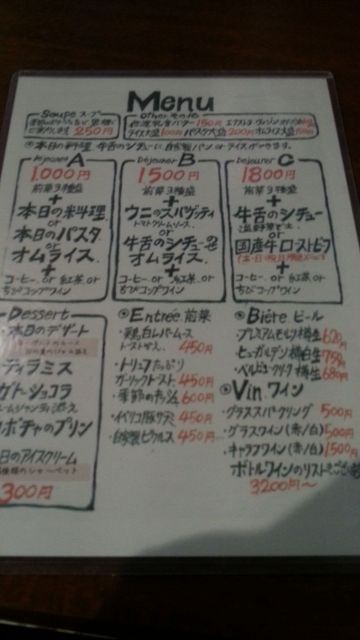 Menu
Soupe スープ
250円
Other その他
150円
ライス大盛100円 パスタ大盛200円 オムライス大盛
déjeuner A
1,000円
前菜3種盛
+
本日の料理
or
本日のパスタ
or
オムライス
+
コーヒー or 紅茶 or
ちびコップワイン
Déjeuner B
1500円
前菜3種盛
+
ウニのスパゲッティ
トマトクリームソース
or
牛舌のシチュー
オムライス
+
コーヒー or 紅茶 or
ちびコップワイン
Déjeuner C
1800円
前菜3種盛
+
牛舌のシチュー
or
国産牛ローストビーフ
+
コーヒー or 紅茶 or
ちびコップワイン
Dessert
本日のデザート
ティラミス
ガトーショコラ
ボチャのプリン
日のアイスクリーム
300円
Entrée 前菜
・鶏白レバームース
トースト 450円
・トリュフたっぷり
ガーリックトースト 450円
・季節の 600円
・イベリコ豚サラミ 450円
・自家製ピクルス 450円
Bière ビール
プレミアムモルツ樽生 620円
ヒューガルデン樽白生 750円
ベルビュークリーク樽生 680円
Vin ワイン
・グラススパークリング 500円
・グラスワイン(赤/白) 500円
・キャラフワイン(赤/白) 1500円
ボトルワインのリストもございます
3200円〜